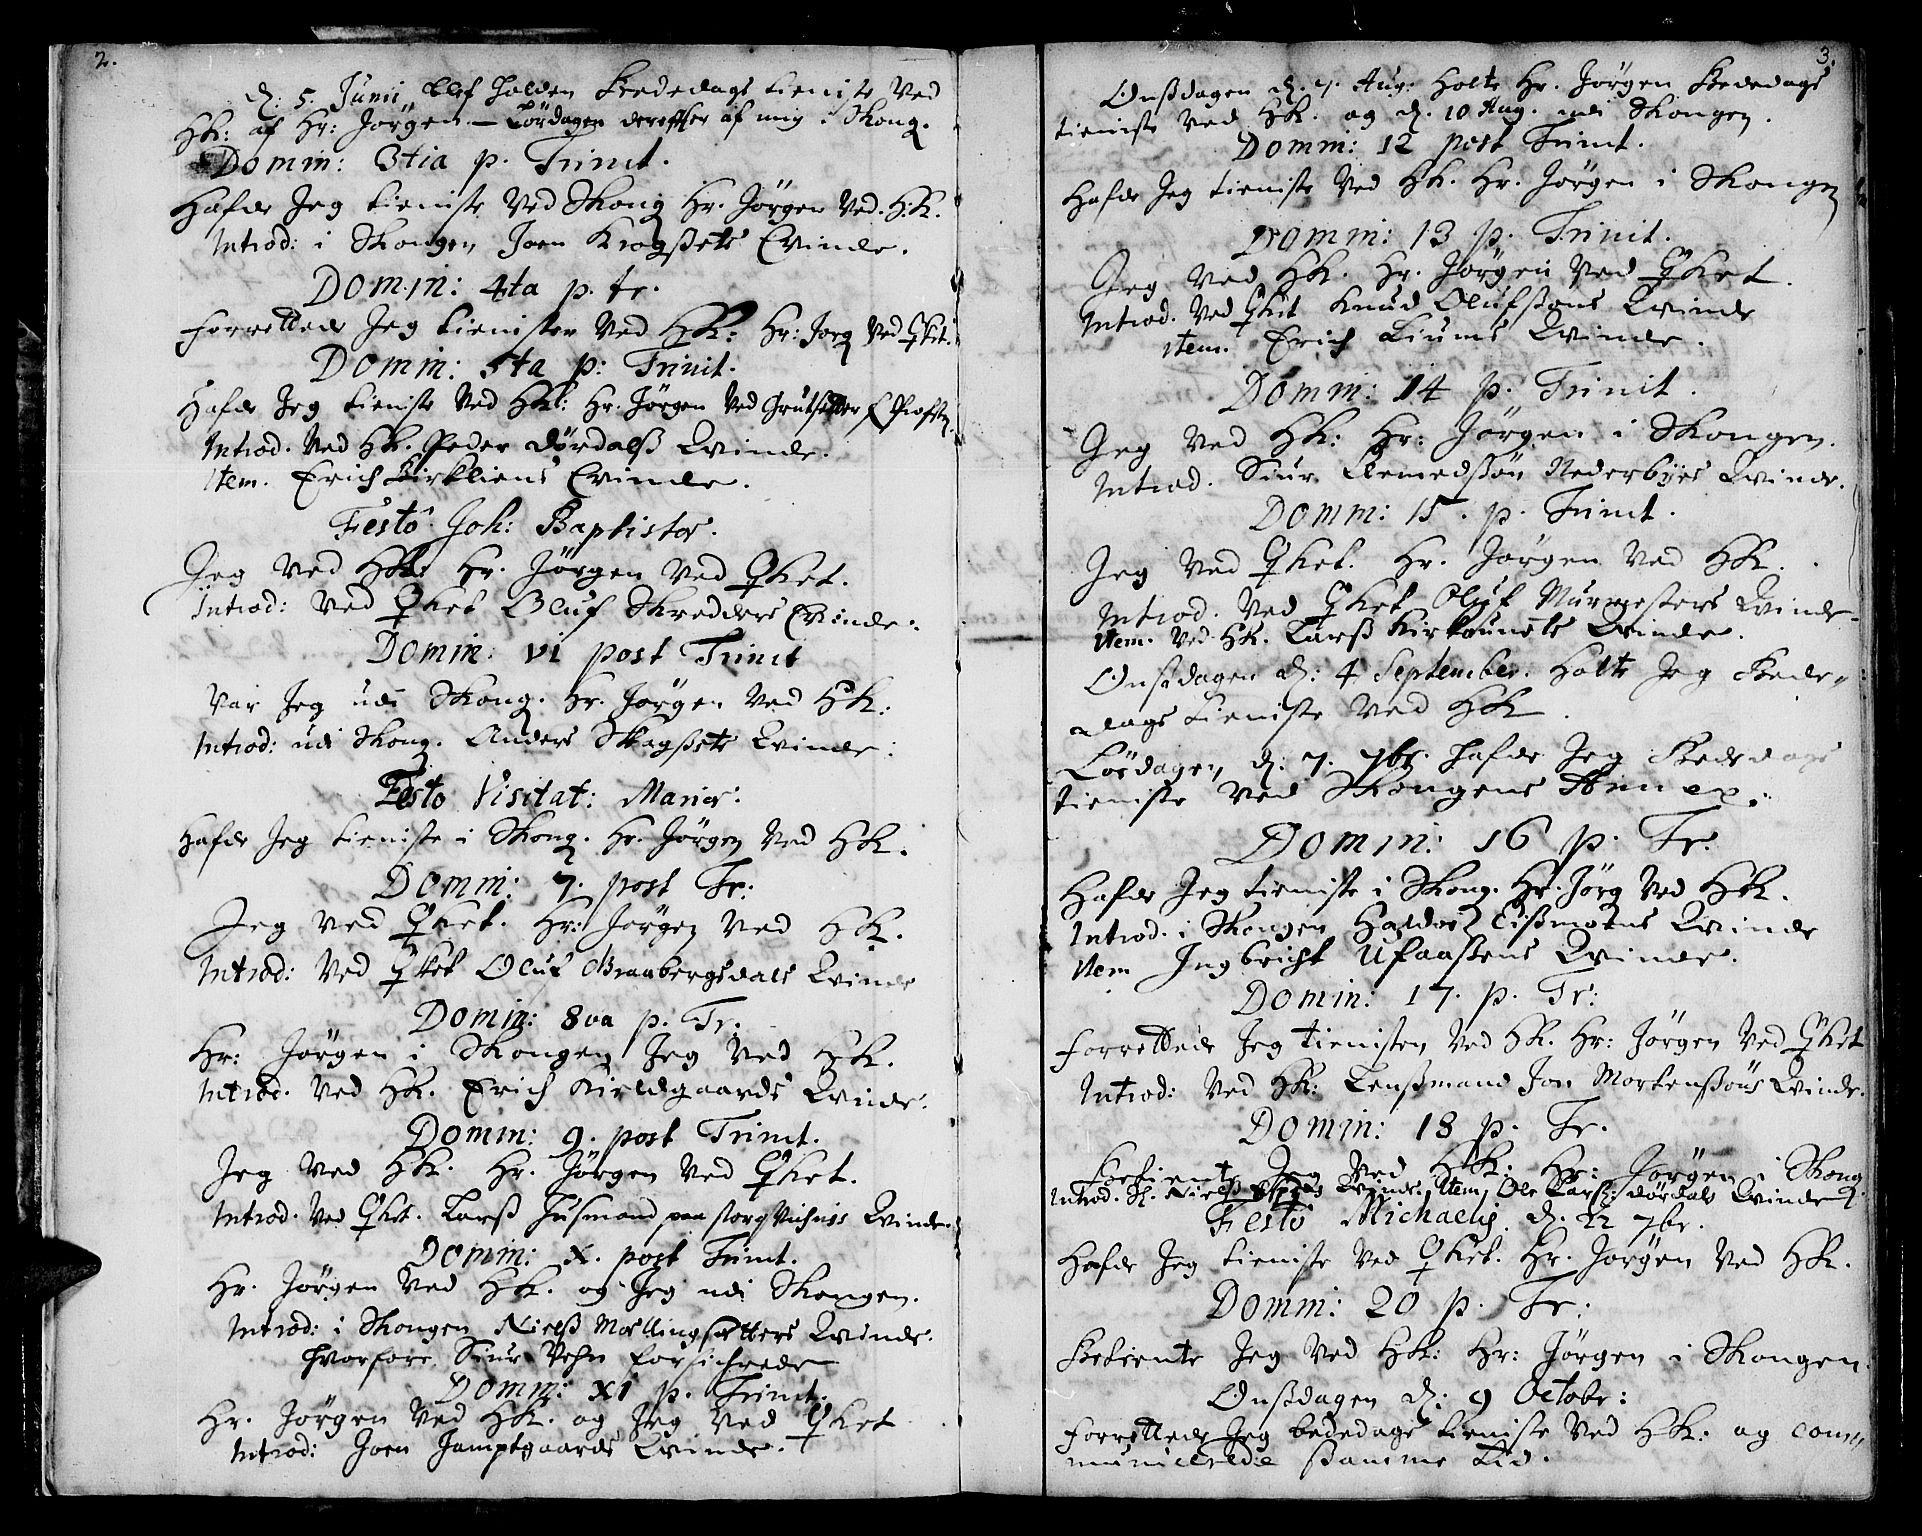 2.
d: 5. Junii blef holden Bededags tieniste Ved
HK: af Hr: Jörgen — Lördagen derefter af mig i Skong.
Domin: 3tia p. Trinit.
Hafde Jeg tieniste Ved Skong Hr. Jörgen Ved. HK.
Introd: i Skongen Joen Krogßets Qvinde.
Domin: 4ta p. tr.
forrettede Jeg tienisten Ved HK: Hr: Jörg Ved Ꝗket.
Domin: 5ta p: Trinit.
Hafde Jeg tieniste Ved HK: Hr. Jörgen Ved
Introd. Ved HK. Peder Dördalß Qvinde.
Item. Erich Birkliens Qvinde.
Festo Joh: Baptistæ.
Jeg Ved HK: Hr. Jörgen Ved Ꝗket.
Introd: Ved Ꝗket Oluf Skredders Qvinde.
Domin: VI post Trinit
Var Jeg udi Skong. Hr. Jörgen Ved HK:
Introd: udi Skong. Anders Skagßets Qvinde.
Festo Visitat: Mariæ.
Hafde Jeg tieniste i Skong. Hr. Jörgen Ved HK.
Domin: 7. post Tr:
Jeg Ved Ꝗket. Hr: Jörgen Ved HK.
Introd: Ved Ꝗket Oluf Graabergsdals Qvinde
Domin: 8va p. Tr.
Hr: Jörgen i Skongen Jeg Ved HK.
Introd. Ved HK. Erich Kirkdgaards Qvinde.
Domin: 9. post Trinit.
Jeg Ved HK. Hr. Jörgen Ved Ꝗket.
Introd. Ved Ꝗket. Larß Husmand paa Qvinde.
Domin: X. post Trinit.
Hr. Jörgen Ved HK. og Jeg udi Skongen.
Introd: i Skongen Nielß Moellingsætters Qvinde.
hvorfore Siur Vehn forsichrede
Domin: XI p. Trinit.
Hr. Jörgen Ved HK. og Jeg Ved Ꝗket
Introd: Joen Jamptgaards Qvinde.
3.
Onßdagen d. 7. Aug: holte Hr. Jörgen Bededags
tieniste Ved HK. og d. 10 Aug. udi Skongen.
Domin: 12 post Trinit.
Hafde Jeg tieniste Ved HK. Hr. Jörgen i Skongen
Domin: 13 p. Trinit.
Jeg Ved HK. Hr. Jörgen Ved Ꝗket.
Introd. Ved Ꝗket Knud Olufßöns Qvinde
Item. Erich Liums Qvinde.
Domin: 14 p. Trinit.
Jeg Ved HK: Hr: Jörgen i Skongen.
Introd. Siur Clemedßön Nederbyes Qvinde.
Domin: 15. p. Trinit.
Jeg Ved Ꝗket. Hr. Jörgen Ved HK.
Introd. Ved Ꝗket Oluf Murmesters Qvinde
Item. Ved HK. Larß Qvinde.
Onßdagen d: 4 September. holte Jeg Bede-
dags tieniste Ved HK.
Lördagen d: 7. 7br. hafde Jeg Bededags
tieniste Ved Skongens Annex.
Domin: 16 p. Tr.
Hafde Jeg tieniste i Skong. Hr. Jörg Ved HK.
Introd. i Skongen Haldor Eißmoens Qvinde
Item Ingbricht Ufaaßens Qvinde.
Domin: 17. p. Tr:
forrettede Jeg tienisten Ved HK. Hr: Jörgen Ved Ꝗket
Introd: Ved HK: Lenßmand Jon Mortenßöns Qvinde.
Domin: 18 p. Tr.
Betiente Jeg Ved HK: Hr: Jörgen i Skong.
Introd. Nielß Qvinde. Item, Ole Larß: dördals Qvinde
Festo Michaelis d. 22 7br.
Hafde Jeg tieniste Ved Ꝗket. Hr Jörgen Ved HK.
Domin: 20 p. Tr:
Betiente Jeg Ved HK: Hr: Jörgen i Skongen.
Onßdagen d: 9 Octobr:
forrettede Jeg bededags tieniste Ved HK: og com-
municerede ßamme tid.